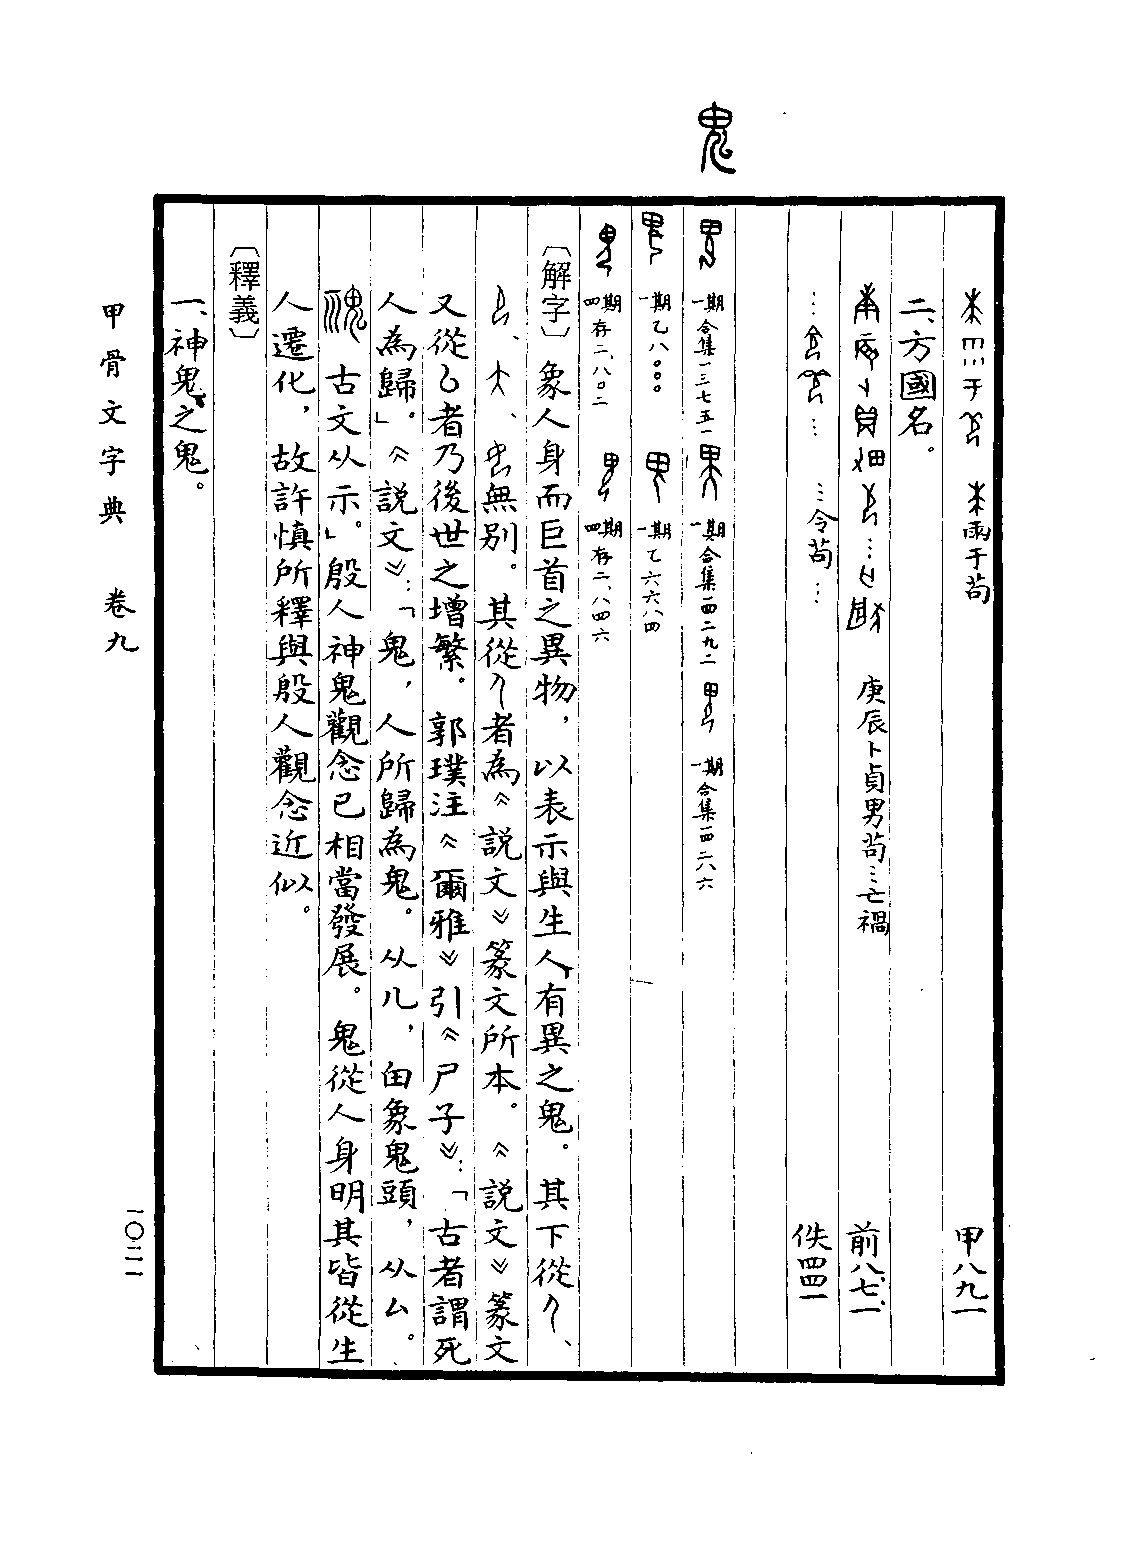 鬼
𠦪雨于苟 甲八九一
二、方國名。
庚辰卜貞男苟…亡禍 前八.七.一
…令苟… 佚四四一
一期合集一三七五一 一期合集一四二九二 一期合集一四二八六
一期乙八〇〇〇 一期乙六六八四
四期存二.八〇二 四期存二.八四六
〔解字〕象人身而巨首之異物，以表示與生人有異之鬼。其下從、
、、無別。其從者為《説文》篆文所本。《説文》篆文
又從厶者乃後世之增繁。郭璞注《爾雅》引《尸子》：「古者謂死
人為歸」。《説文》：「鬼，人所歸為鬼。从儿，甶象鬼頭，从厶。
古文从示。」殷人神鬼觀念已相當發展。鬼從人身明其皆從生
人遷化，故許慎所釋與殷人觀念近似。
〔釋義〕
一、神鬼之鬼。
甲骨文字典 卷九
一〇二一